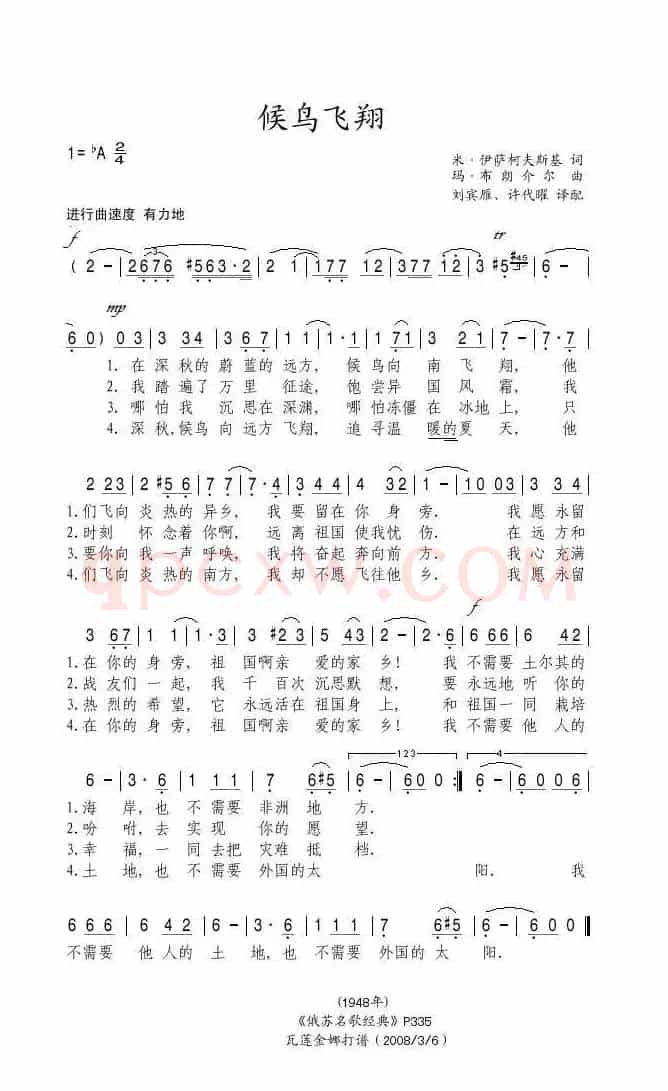 候鸟飞翔
1=♭A 2/4
米·伊萨柯夫斯基 词
玛·布朗介尔 曲
刘宾雁、许代曜 译配
进行曲速度 有力地
f tr
( 2 - | 2676 #563·2 | 2 1 | 177 | 122 | 377 12 | 3 #5 | 6 - |
mp
60 ) | 03 | 3 34 | 3 67 | 1 1 | 1·1 | 1 71 | 3 21 | 7 - | 7·7 |
1.在深秋的蔚蓝的远方，候鸟向南飞翔，他
2.我踏遍了万里征途，饱尝异国风霜，我
3.哪怕我沉思在深渊，哪怕冻僵在冰地上，只
4.深秋,候鸟向远方飞翔，追寻温暖的夏天，他
2 23 | 2 #56 | 7 7 | 7·4 | 3 44 | 3 42 | 1 - | 1003 | 3 34 |
1.们飞向炎热的异乡，我要留在你身旁．我愿永留
2.时刻怀念着你啊，远离祖国使我忧伤．在远方和
3.要你向我一声呼唤，我将奋起奔向前方．我心充满
4.们飞向炎热的南方，我却不愿飞往他乡．我愿永留
qpcxw.com
f
3 67 | 1 1 | 1·1 | 3 #23 | 5 43 | 2 - | 2·6 | 666 | 6 42 |
1.在你的身旁，祖国啊亲爱的家乡！我不需要土尔其的
2.战友们一起，我千百次沉思默想，要永远地听你的
3.热烈的希望，它永远活在祖国身上，和祖国一同栽培
4.在你的身旁，祖国啊亲爱的家乡！我不需要他人的
123 4
6 - | 3·6 | 111 | 7 | 6#5 | 6 - | 600 :‖ 6 - | 6006 |
1.海岸，也不需要非洲地方．
2.吩咐，去实现你的愿望．
3.幸福，一同去把灾难抵档．
4.土地，也不需要外国的太阳．我
666 | 6 42 | 6 - | 3·6 | 111 | 7 | 6#5 | 6 - | 600 ‖
不需要他人的土地，也不需要外国的太阳．
(1948年)
《俄苏名歌经典》P335
瓦莲金娜打谱（2008/3/6）